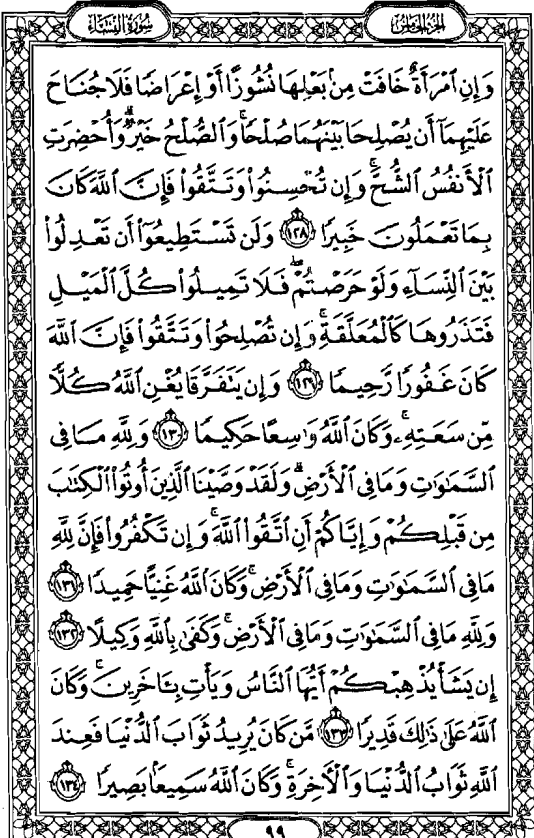 سُورَةُ النِّسَاءِ الجُزْءُ الخَامِسُ
وَإِنِ ٱمْرَأَةٌ خَافَتْ مِنۢ بَعْلِهَا نُشُوزًا أَوْ إِعْرَاضًا فَلَا جُنَاحَ
عَلَيْهِمَآ أَن يُصْلِحَا بَيْنَهُمَا صُلْحًا ۚ وَٱلصُّلْحُ خَيْرٌ ۗ وَأُحْضِرَتِ
ٱلْأَنفُسُ ٱلشُّحَّ ۚ وَإِن تُحْسِنُوا۟ وَتَتَّقُوا۟ فَإِنَّ ٱللَّهَ كَانَ
بِمَا تَعْمَلُونَ خَبِيرًا ١٢٨ وَلَن تَسْتَطِيعُوٓا۟ أَن تَعْدِلُوا۟
بَيْنَ ٱلنِّسَآءِ وَلَوْ حَرَصْتُمْ ۖ فَلَا تَمِيلُوا۟ كُلَّ ٱلْمَيْلِ
فَتَذَرُوهَا كَٱلْمُعَلَّقَةِ ۚ وَإِن تُصْلِحُوا۟ وَتَتَّقُوا۟ فَإِنَّ ٱللَّهَ
كَانَ غَفُورًا رَّحِيمًا ١٢٩ وَإِن يَتَفَرَّقَا يُغْنِ ٱللَّهُ كُلًّا
مِّن سَعَتِهِۦ ۚ وَكَانَ ٱللَّهُ وَٰسِعًا حَكِيمًا ١٣٠ وَلِلَّهِ مَا فِى
ٱلسَّمَٰوَٰتِ وَمَا فِى ٱلْأَرْضِ ۗ وَلَقَدْ وَصَّيْنَا ٱلَّذِينَ أُوتُوا۟ ٱلْكِتَٰبَ
مِن قَبْلِكُمْ وَإِيَّاكُمْ أَنِ ٱتَّقُوا۟ ٱللَّهَ ۚ وَإِن تَكْفُرُوا۟ فَإِنَّ لِلَّهِ
مَا فِى ٱلسَّمَٰوَٰتِ وَمَا فِى ٱلْأَرْضِ ۚ وَكَانَ ٱللَّهُ غَنِيًّا حَمِيدًا ١٣١
وَلِلَّهِ مَا فِى ٱلسَّمَٰوَٰتِ وَمَا فِى ٱلْأَرْضِ ۚ وَكَفَىٰ بِٱللَّهِ وَكِيلًا ١٣٢
إِن يَشَأْ يُذْهِبْكُمْ أَيُّهَا ٱلنَّاسُ وَيَأْتِ بِـَٔاخَرِينَ ۚ وَكَانَ
ٱللَّهُ عَلَىٰ ذَٰلِكَ قَدِيرًا ١٣٣ مَّن كَانَ يُرِيدُ ثَوَابَ ٱلدُّنْيَا فَعِندَ
ٱللَّهِ ثَوَابُ ٱلدُّنْيَا وَٱلْـَٔاخِرَةِ ۚ وَكَانَ ٱللَّهُ سَمِيعًۢا بَصِيرًا ١٣٤
٩٩